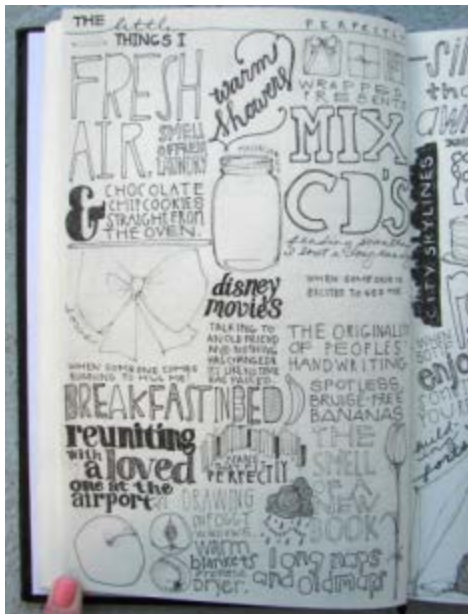 THE little
THINGS I
FRESH
AIR.
SMELL
OF FRESH
LAUNDRY
warm
showers
PERFECTLY
WRAPPED
PRESENTS
MIX
CD'S
& CHOCOLATE
CHIP COOKIES
STRAIGHT FROM
THE OVEN.
finding
disney
movies
WHEN SOMEONE IS
EXCITED TO SEE ME
TALKING TO
AN OLD FRIEND
AND NOTHING
HAS CHANGED OR
IT'S LIKE NO TIME
HAS PASSED.
THE ORIGINALITY
OF PEOPLES'
HANDWRITING
WHEN SOMEONE COMES
RUNNING TO HUG ME
BREAKFAST IN BED
SPOTLESS,
BRUISE-FREE
BANANAS
reuniting
with a loved
one at the
airport
PERFECTLY
THE
SMELL
OF A
NEW
BOOK
DRAWING
ON FOGGY
WINDOWS
warm
blankets
dryer.
long naps
and old maps
CITY SKYLINES
WHEN
enjoy